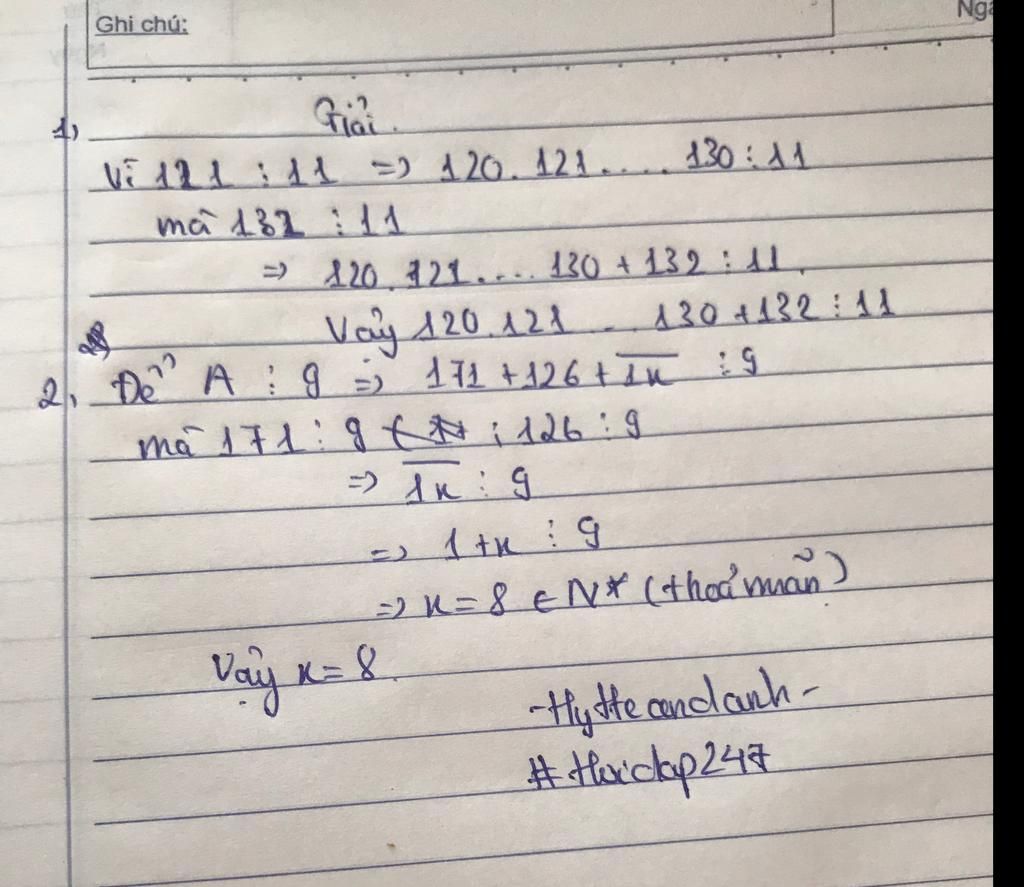 Ghi chú:
Ngà
1, Giải.
Vì 121 ⋮ 11 => 120. 121.... 130 ⋮ 11
mà 132 ⋮ 11
=> 120. 121.... 130 + 132 ⋮ 11.
Vậy 120. 121 ... 130 + 132 ⋮ 11
2, Để A ⋮ 9 => 171 + 126 + \overline{1x} ⋮ 9
mà 171 ⋮ 9 ; 126 ⋮ 9
=> \overline{1x} ⋮ 9
=> 1 + x ⋮ 9
=> x = 8 ∈ N* (thoả mãn)
Vậy x = 8.
#Hoidap247